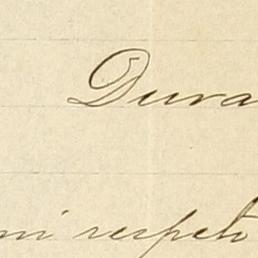 Dura
mi respeto